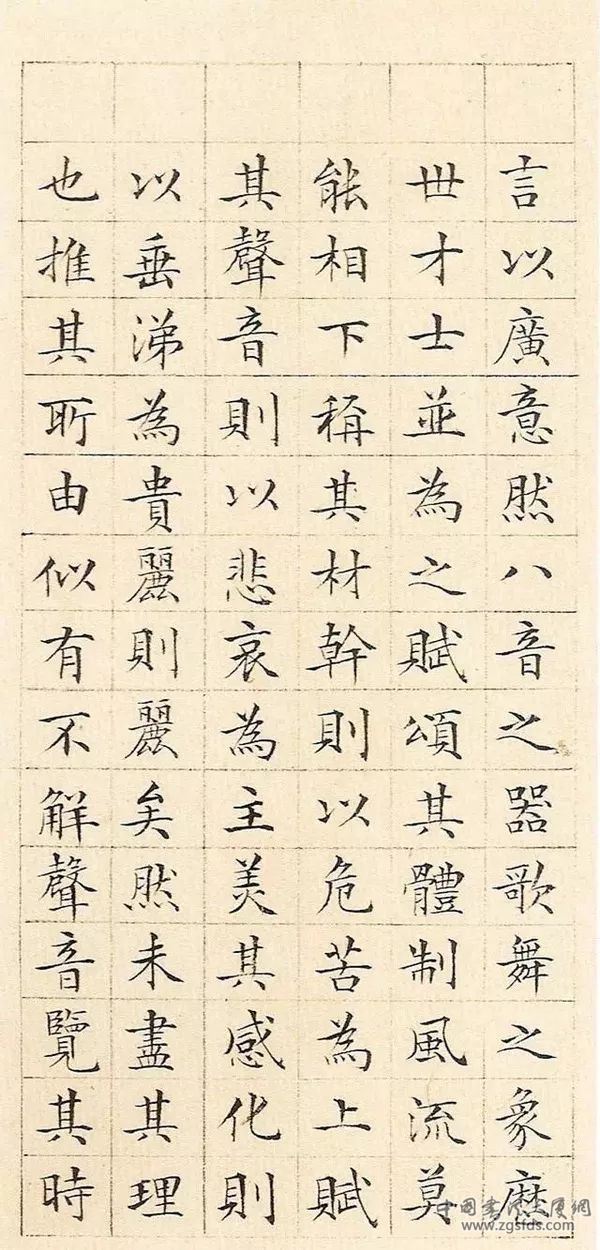 言以廣意然八音之器歌舞之象歷
世才士並為之賦頌其體制風流莫
能相下稱其材幹則以危苦為上賦
其聲音則以悲哀為主美其感化則
以垂涕為貴麗則麗矣然未盡其理
也推其所由似有不解聲音覽其時
中国书法大展網
www.zgsfds.com